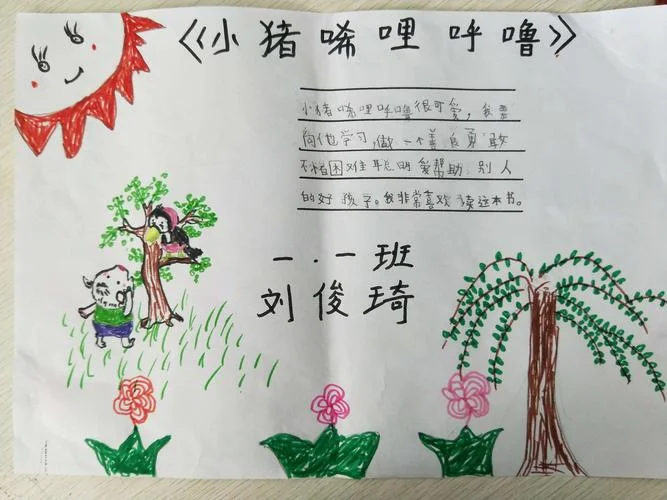 《小猪唏哩呼噜》
小猪唏哩呼噜很可爱，我要
向他学习，做一个善良勇敢
不怕困难聪明爱帮助别人
的好孩子。我非常喜欢读这本书。
一.一班
刘俊琦